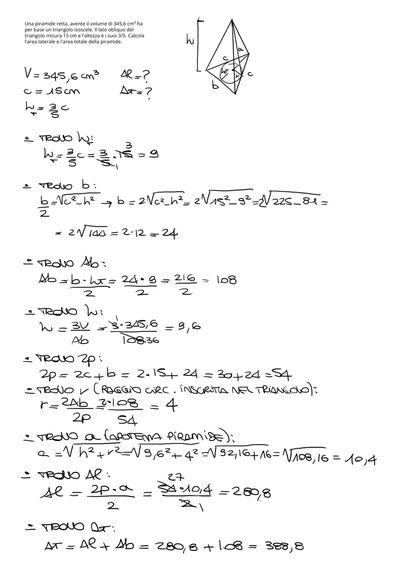 Una piramide retta, avente il volume di 345,6 cm³ ha
per base un triangolo isoscele. Il lato obliquo del
triangolo misura 15 cm e l'altezza è i suoi 3/5. Calcola
l'area laterale e l'area totale della piramide.
h
a
c
r
hт
b
c
V = 345,6 cm³ Al = ?
c = 15 cm Δт = ?
hт = 3/5 c
- TROVO hт:
hт = 3/5 c = 3/5 · 15 = 9
- TROVO b:
b/2 = √c²-h² → b = 2√c²-h² = 2√15²-9² = 2√225-81 =
= 2√144 = 2·12 = 24
- TROVO Ab:
Ab = b·hт/2 = 24·9/2 = 216/2 = 108
- TROVO h:
h = 3V/Ab = 3·345,6/108 36 = 9,6
- TROVO 2p:
2p = 2c+b = 2·15+24 = 30+24 = 54
- TROVO r (RAGGIO CIRC. INSCRITTA NEL TRIANGOLO):
r = 2Ab/2p = 2·108/54 = 4
- TROVO a (APOTEMA PIRAMIDE):
a = √h²+r² = √9,6²+4² = √92,16+16 = √108,16 = 10,4
- TROVO Al:
Al = 2p·a/2 = 27 54·10,4/2 1 = 280,8
- TROVO Δт:
Δт = Al + Ab = 280,8 + 108 = 388,8